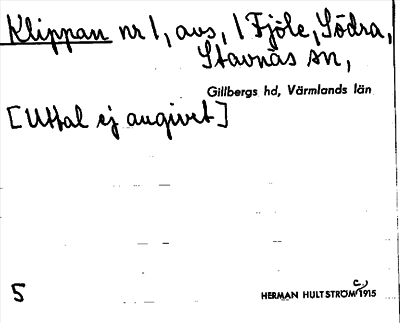 Klippan nr 1, avs, 1 Fjöle, Södra,
Stavnäs sn,
Gillbergs hd, Värmlands län
[Uttal ej angivet]
5
HERMAN HULTSTRÖM c. 1915